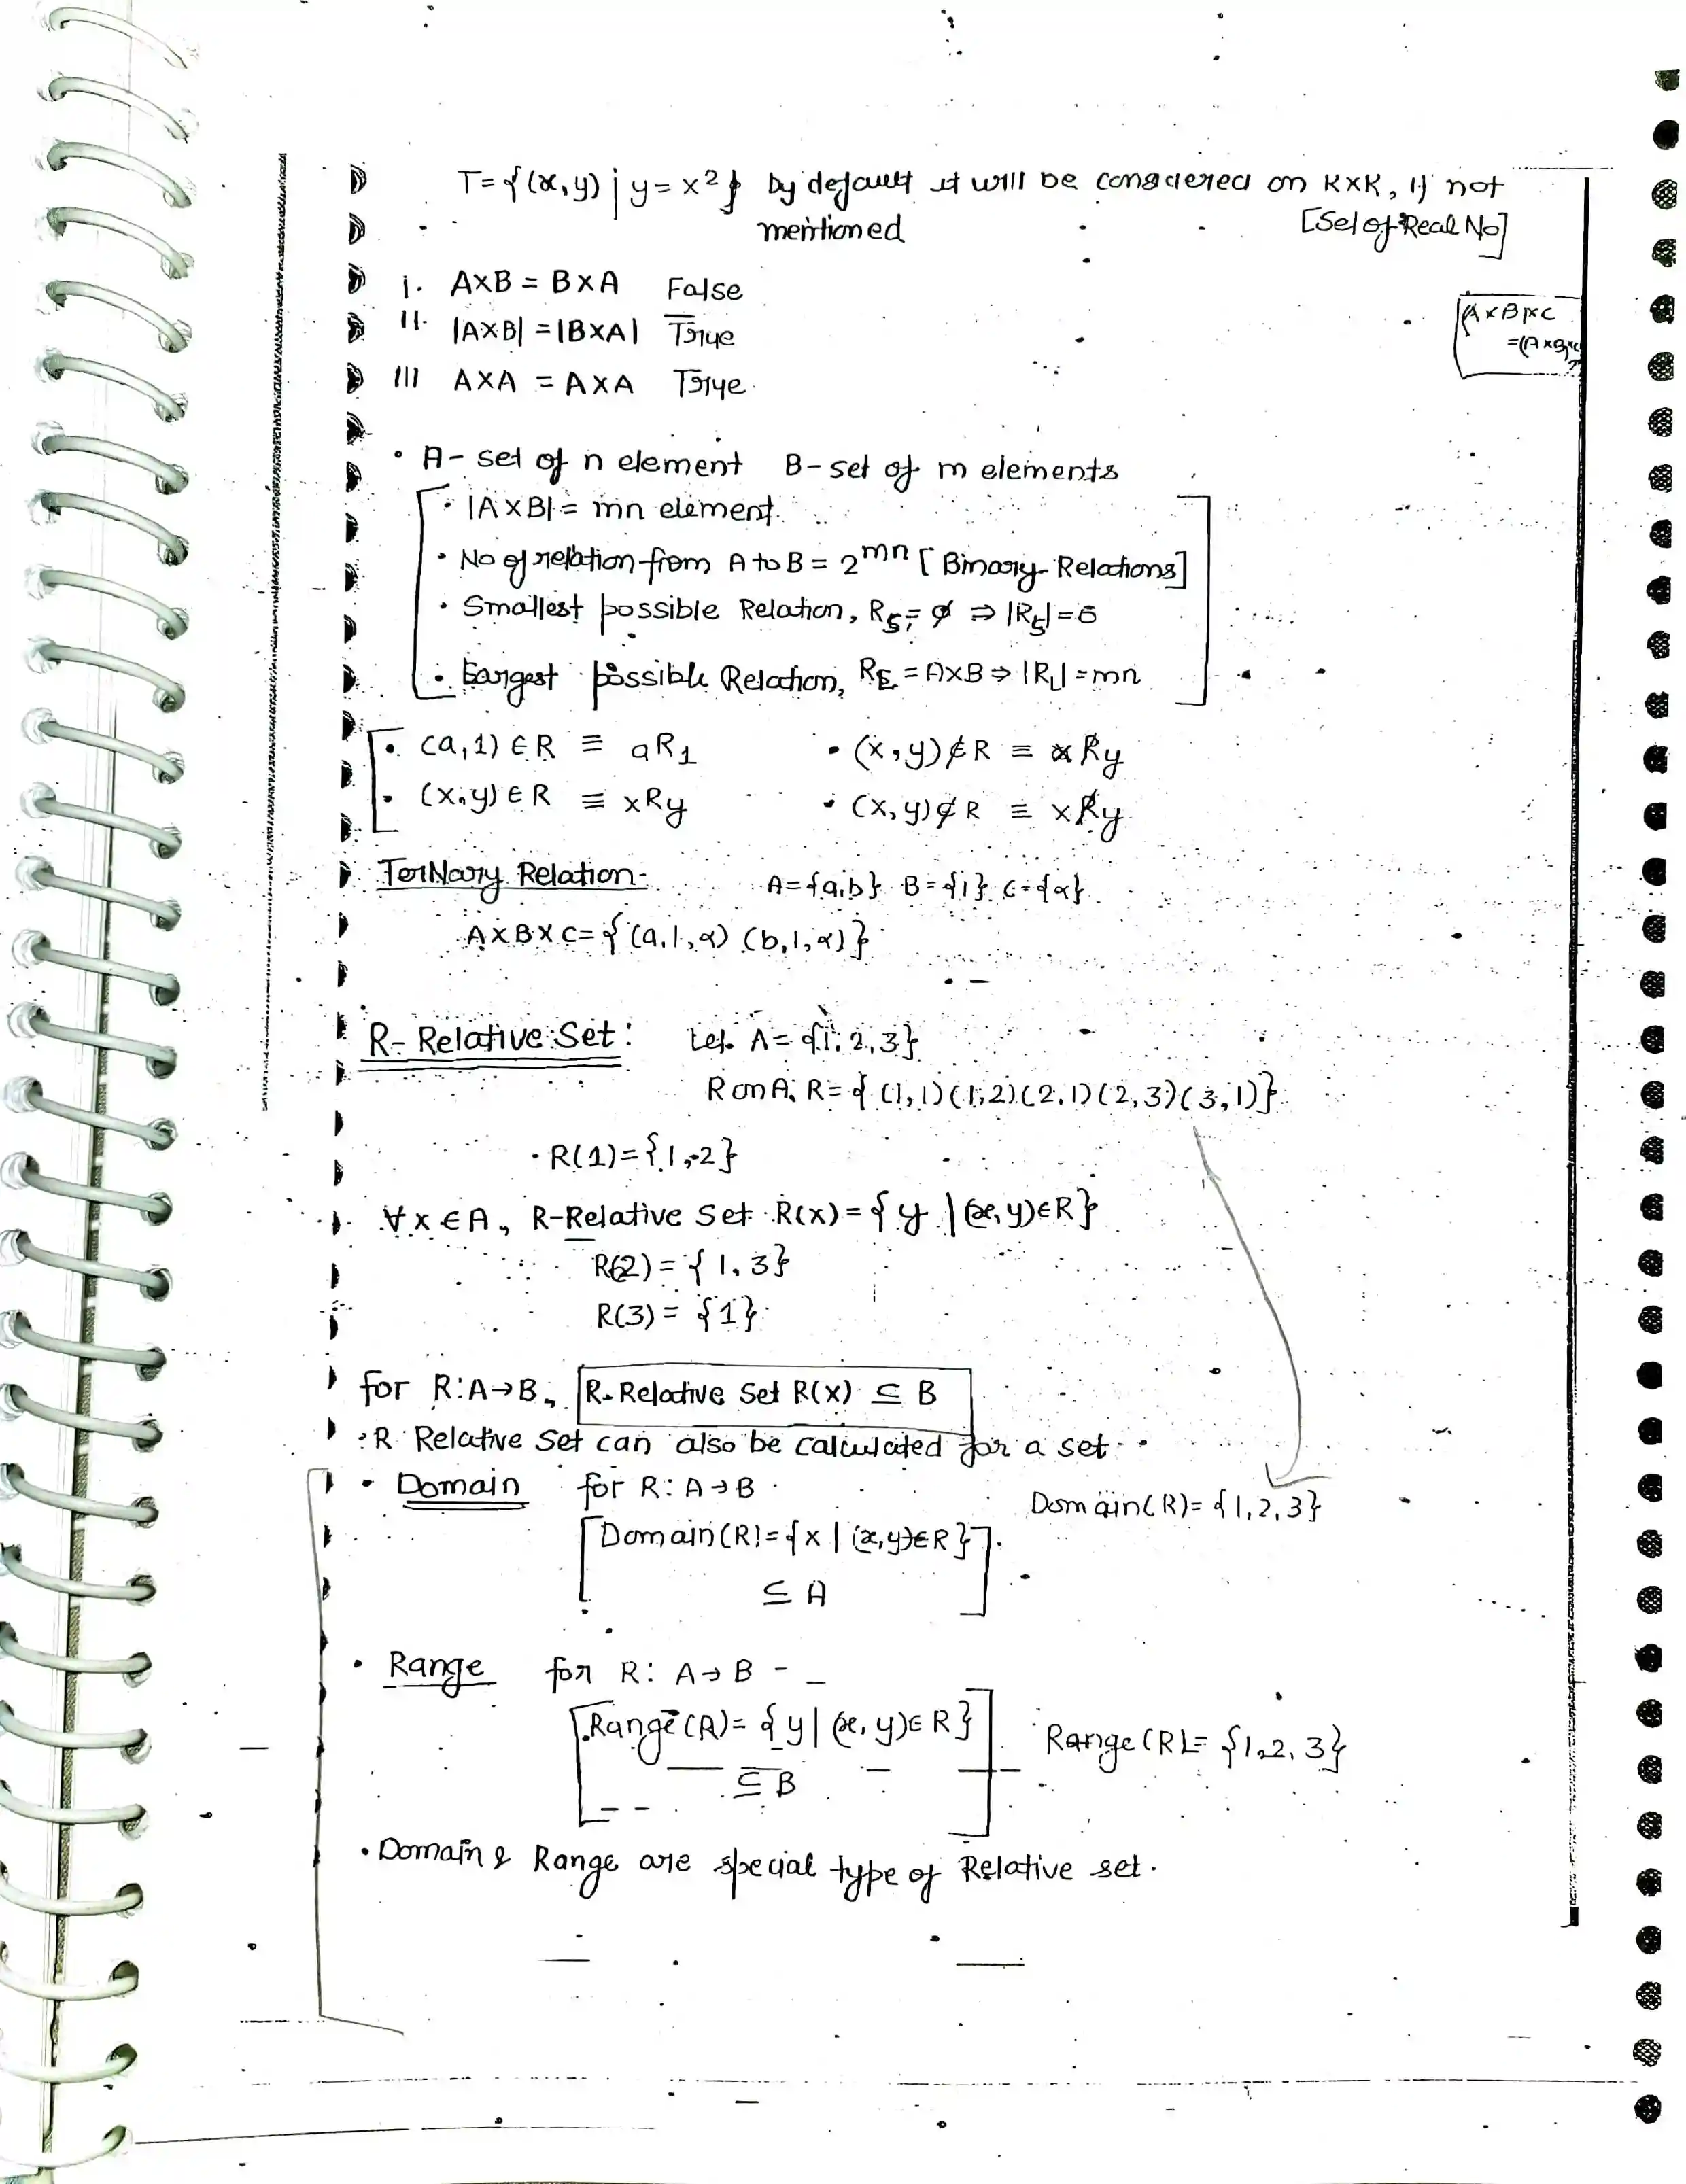 T = {(x, y) | y = x²} by default it will be considered on R×R, if not
mentioned [Set of Real No]
i. A×B = B×A False
II. |A×B| = |B×A| True
III A×A = A×A True
(A×B)×C
=(A×B)×C
• A - set of n element B - set of m elements
• |A×B| = mn element.
• No of relation from A to B = 2^mn [Binary Relations]
• Smallest possible Relation, R_S = ∅ ⇒ |R_S| = 0
• Largest possible Relation, R_L = A×B ⇒ |R_L| = mn
• (a,1) ∈ R ≡ aR1 • (x,y) ∉ R ≡ x R̸ y
• (x,y) ∈ R ≡ xRy • (x,y) ∉ R ≡ x R̸ y
TerNary Relation - A={a,b} B={1} C={α}
A×B×C = {(a,1,α) (b,1,α)}
R- Relative Set : Let A = {1, 2, 3}
R on A, R = {(1,1)(1,2)(2,1)(2,3)(3,1)}
• R(1) = {1, 2}
∀ x ∈ A, R-Relative Set R(x) = {y | (x,y) ∈ R}
R(2) = {1, 3}
R(3) = {1}
for R: A→B, R-Relative Set R(x) ⊆ B
• R Relative Set can also be calculated for a set.
• Domain for R: A→B
Domain(R) = {1,2,3}
[Domain(R) = {x | (x,y) ∈ R}]
⊆ A
• Range for R: A→B -
[Range(A) = {y | (x, y) ∈ R}] Range(R) = {1,2,3}
⊆ B
• Domain & Range are special type of Relative set.